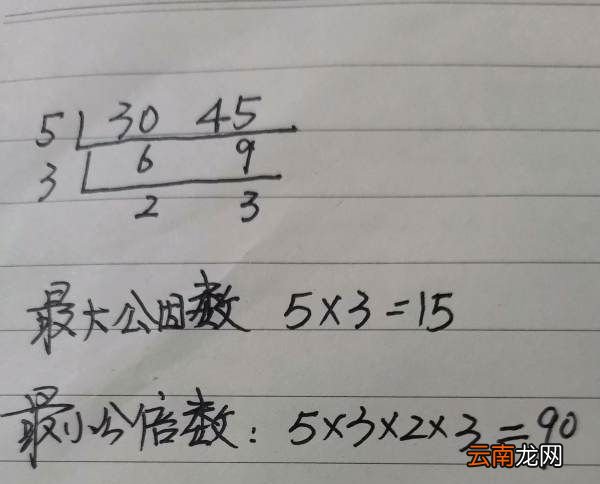 5 30 45
3 6 9
2 3
最大公因数 5×3=15
最小公倍数：5×3×2×3=90
云南龙网